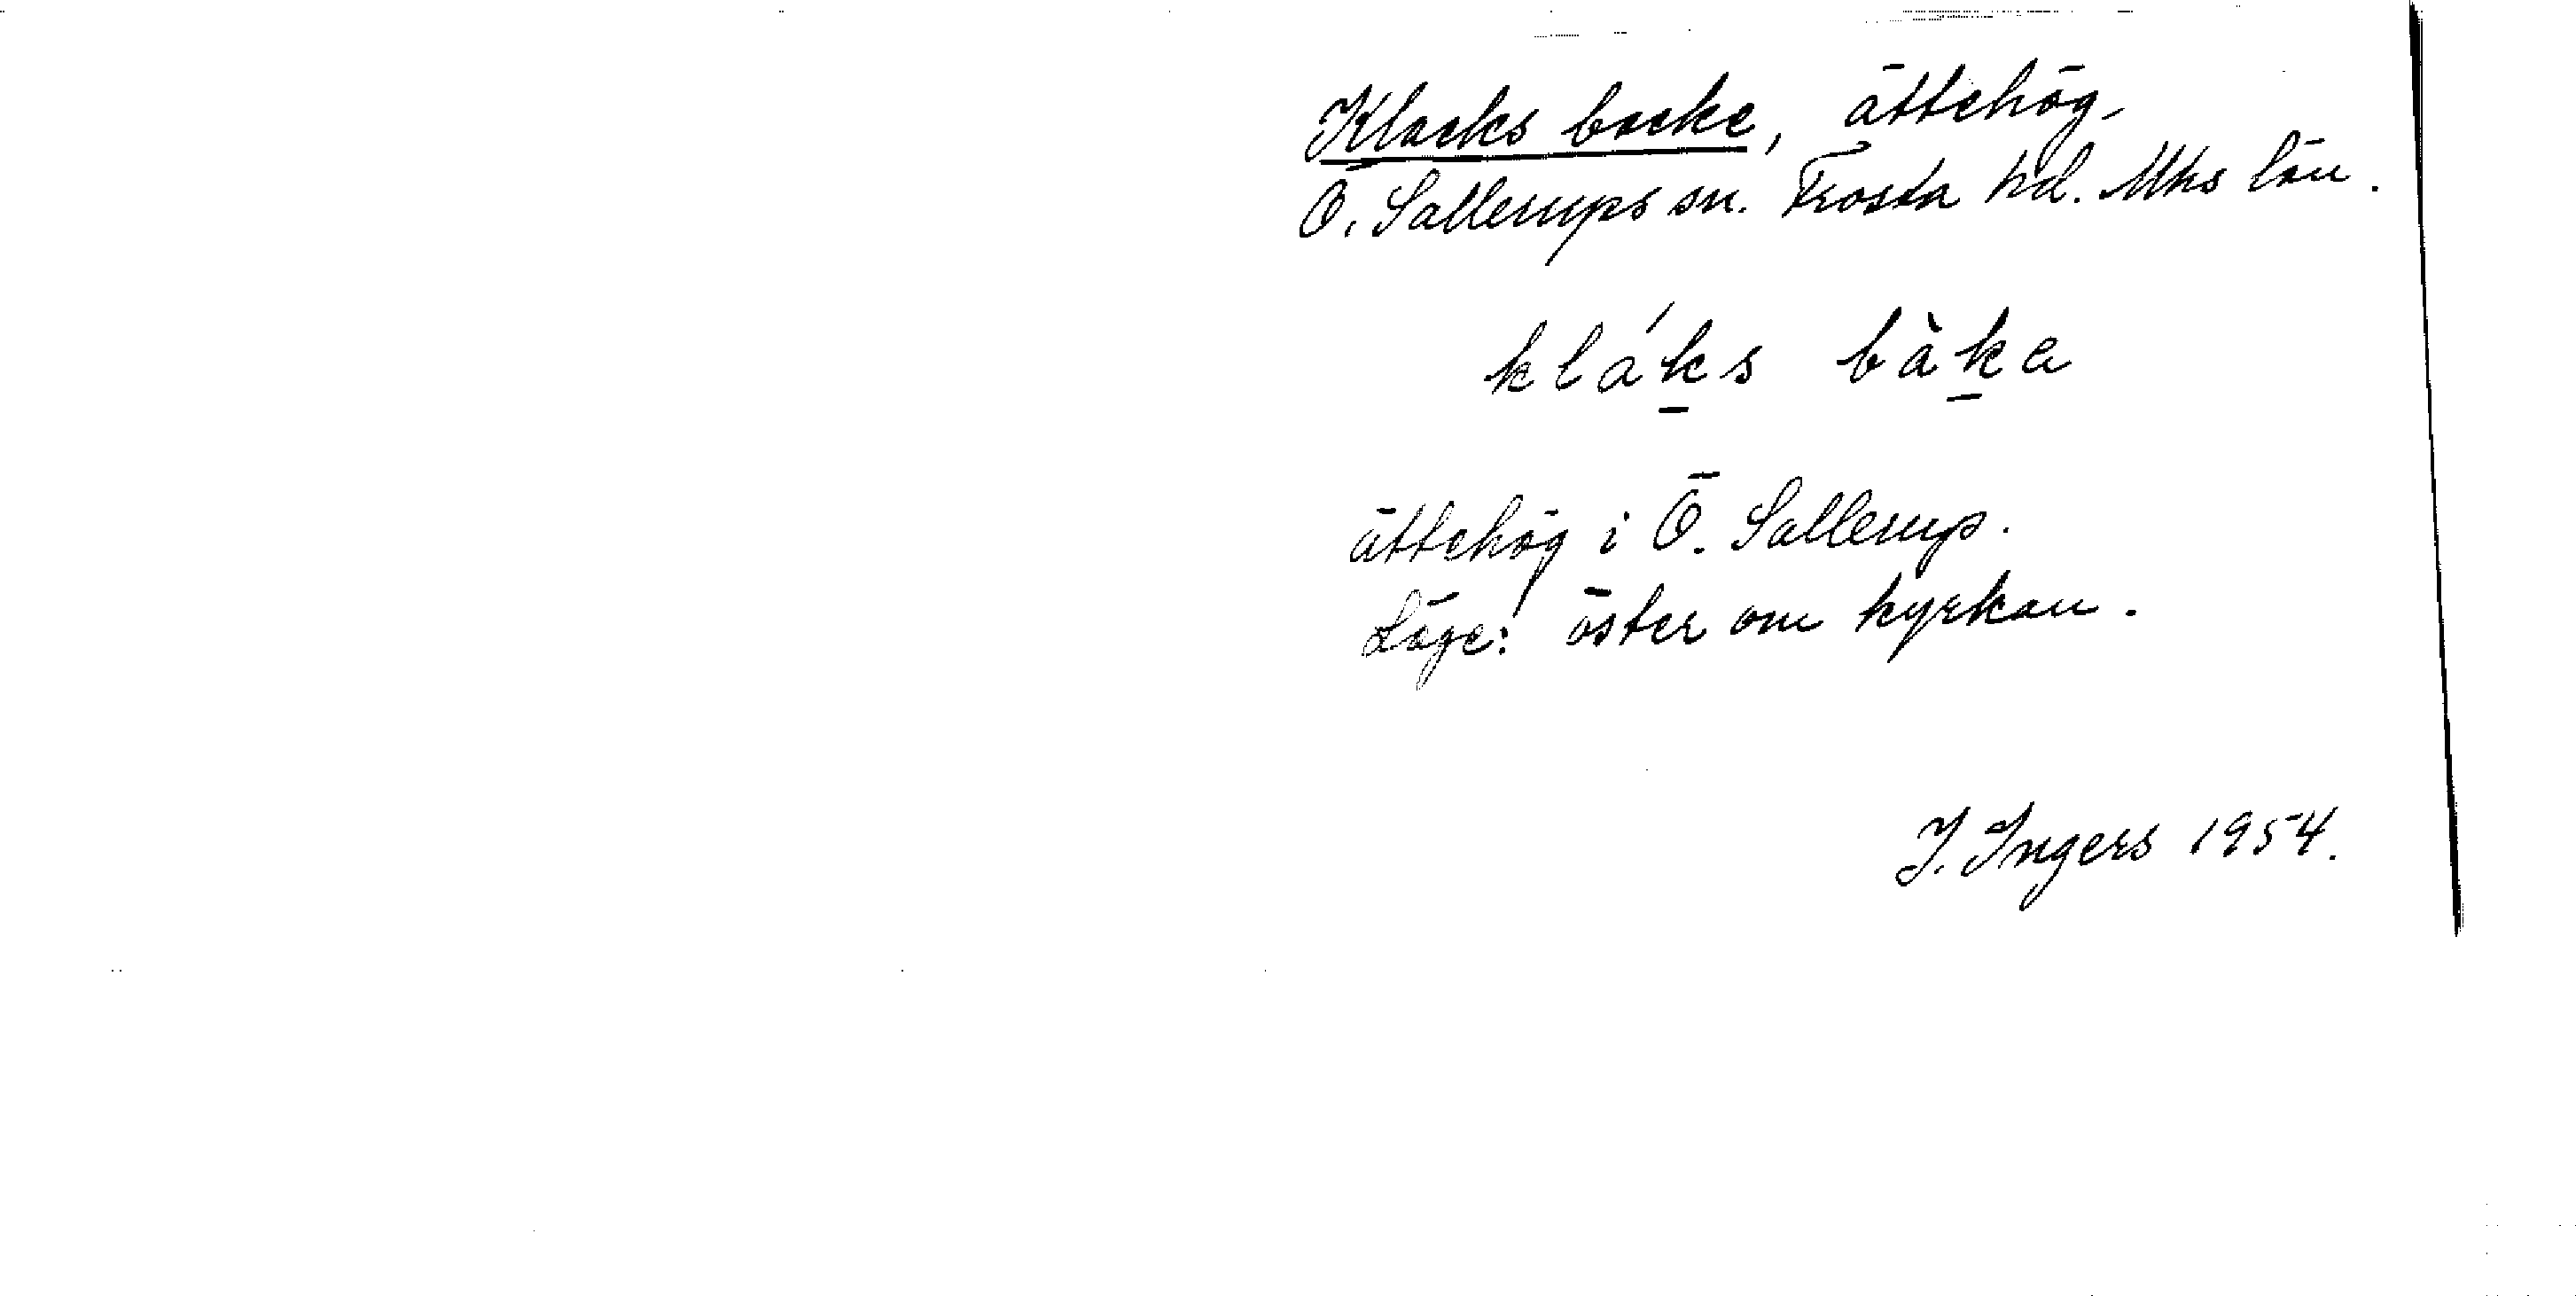 Klacks backe, ättehög,
Ö. Sallerups sn. Frosta hd. Mhs län.
kláḵs bàḵa
ättehög i Ö. Sallerup.
Läge: öster om kyrkan.
I. Ingers 1954.